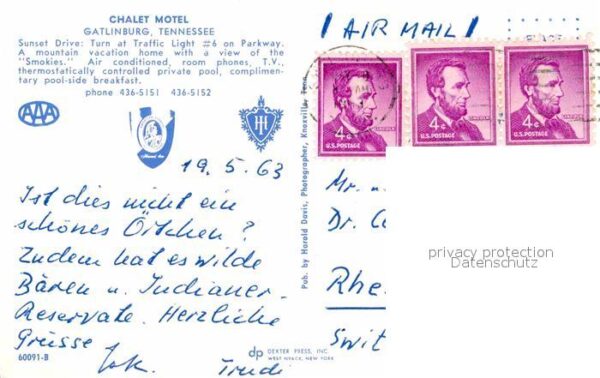 CHALET MOTEL
GATLINBURG, TENNESSEE
Sunset Drive: Turn at Traffic Light #6 on Parkway.
A mountain vacation home with a view of the
"Smokies." Air conditioned, room phones, T.V.,
thermostatically controlled private pool, complimen-
tary pool-side breakfast.
phone 436-5151 436-5152
AAA
19.5.63
Ist dies nicht ein
schönes Örtchen?
Zudem hat es wilde
Bären u. Indianer-
Reservate. Herzliche
Grüsse
Trudi
60091-B
dp DEXTER PRESS, INC.
WEST NYACK, NEW YORK
Pub. by Harold Davis, Photographer, Knoxville, Tenn.
AIR MAIL
PLACE
4¢
LINCOLN
U.S. POSTAGE
4¢
LINCOLN
U.S. POSTAGE
4¢
LINCOLN
U.S. POSTAGE
Mr. u.
Dr.
privacy protection
Datenschutz
Rhe
Swit